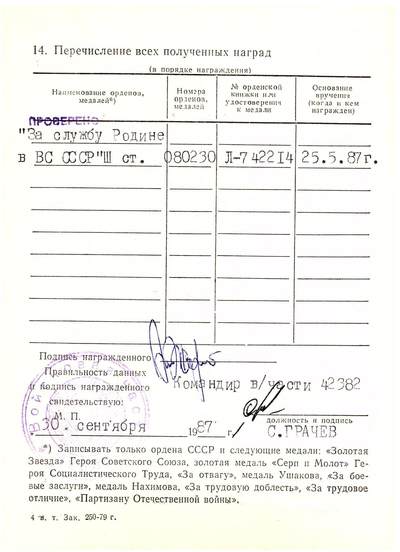 14. Перечисление всех полученных наград
(в порядке награждения)
Наименование орденов, медалей*)
Номера орденов, медалей
№ орденской книжки или удостоверения к медали
Основание вручения (когда и кем награжден)
ПРОВЕРЕНО
"За службу Родине
в ВС СССР"Ш ст. 080230 Л-742214 25.5.87г.
Подпись награжденного
Правильность данных
и подпись награжденного
свидетельствую:
Командир в/части 42382
М. П.
должность и подпись
30 сентября 1987 г. С.ГРАЧЕВ
*) Записывать только ордена СССР и следующие медали: «Золотая
Звезда» Героя Советского Союза, золотая медаль «Серп и Молот» Ге-
роя Социалистического Труда, «За отвагу», медаль Ушакова, «За бое-
вые заслуги», медаль Нахимова, «За трудовую доблесть», «За трудовое
отличие», «Партизану Отечественной войны».
4 в. т. Зак. 250-79 г.